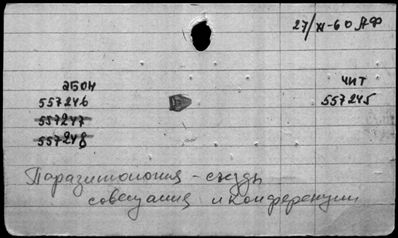 27/XI-60 АФ
АБОН ЧИТ
557246 557245
557247
557248
Паразитология - съезды
совещания и конференции